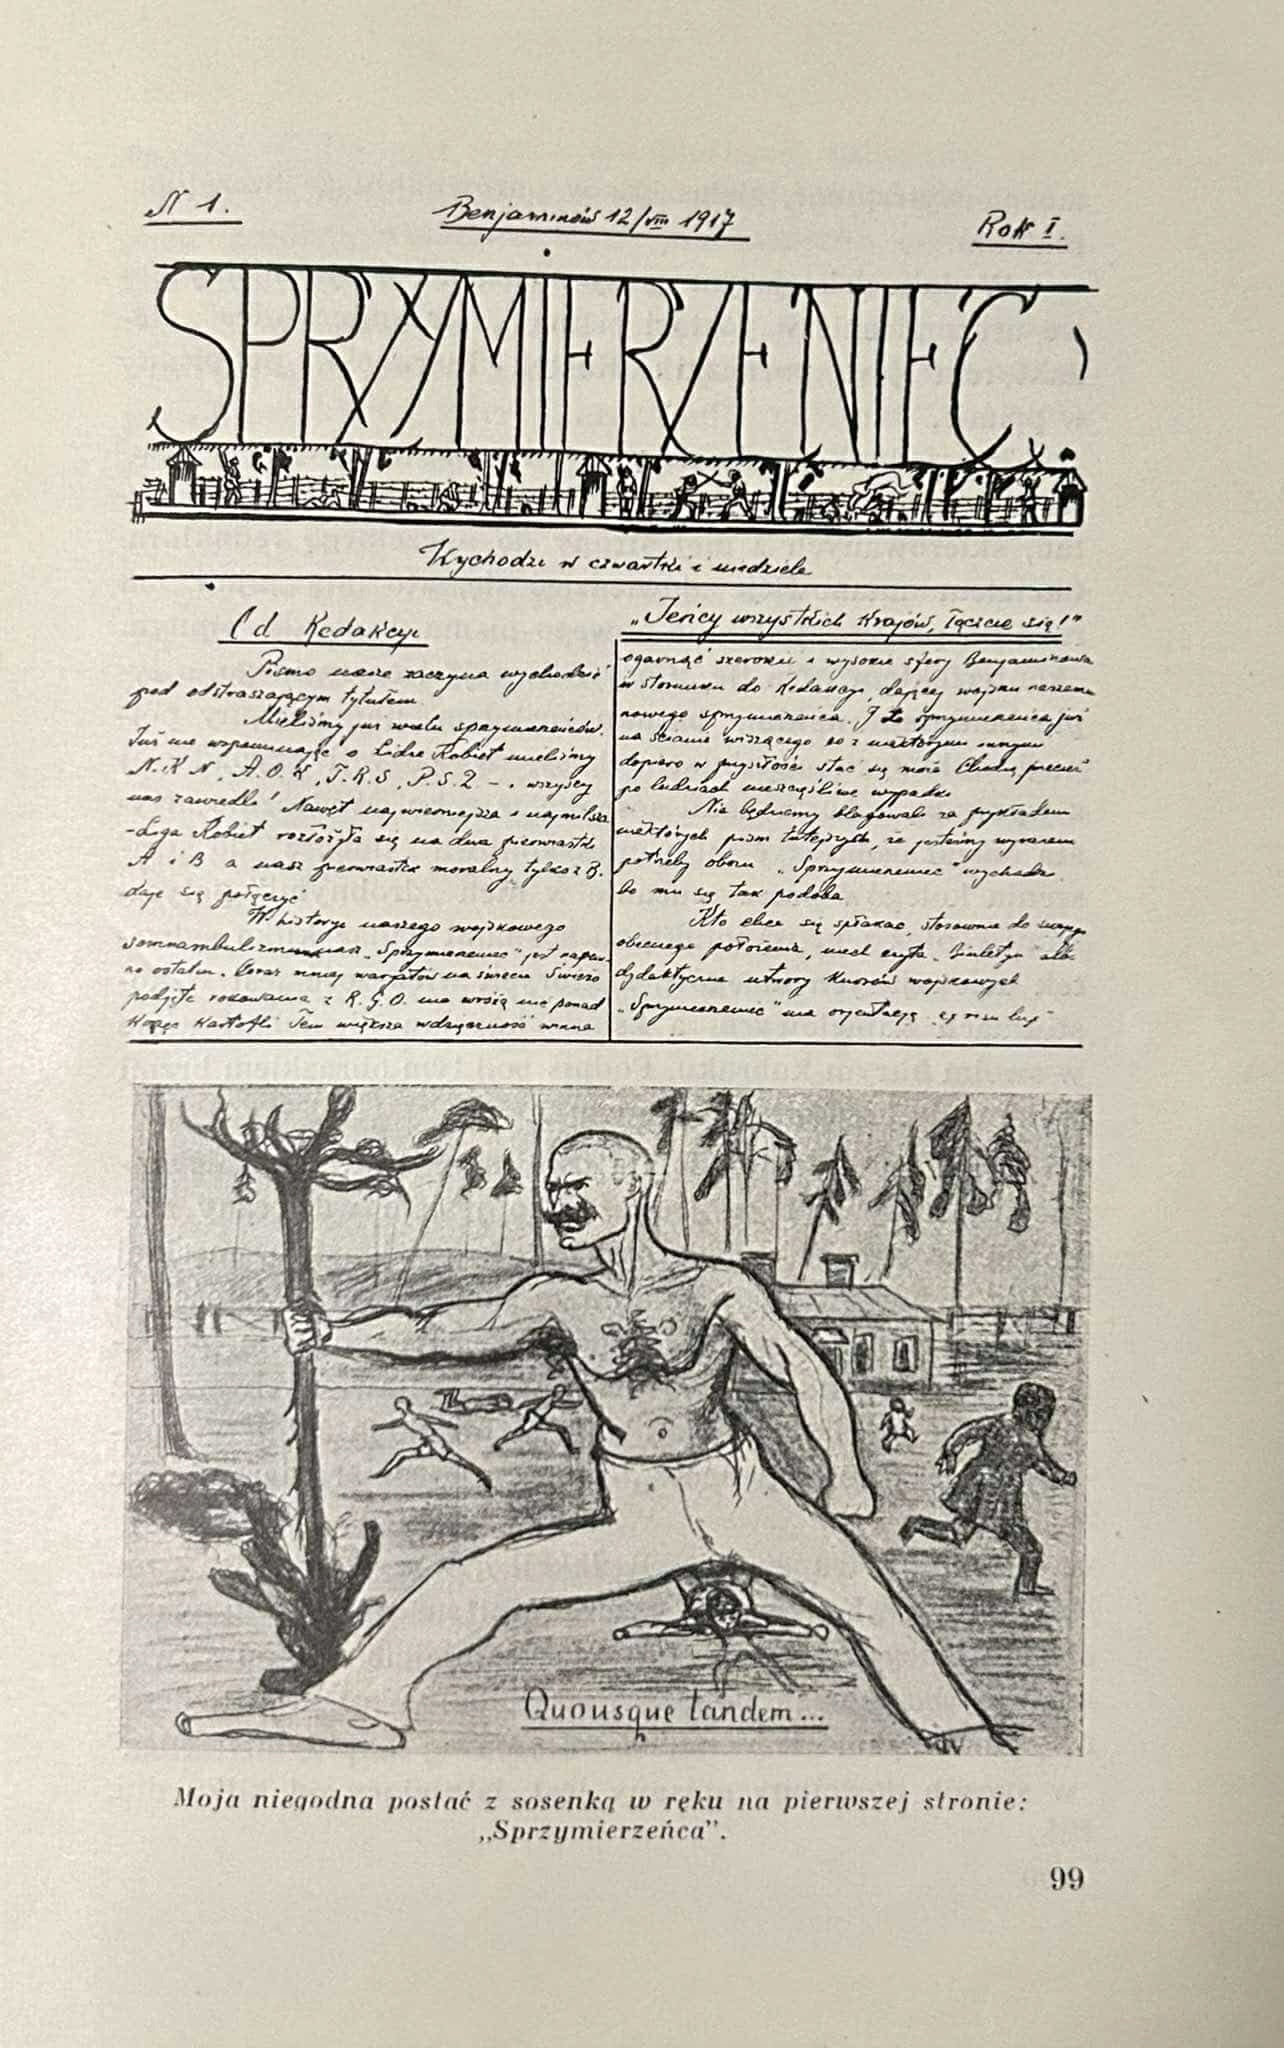 N 1.
Benjaminów 12/VIII 1917
Rok I.
SPRZYMIERZENIEC
Wychodzi w czwartki i niedziele
Od Redakcyi
Pismo nasze zaczyna wychodzić
pod odstraszającym tytułem.
Mieliśmy już wielu sprzymierzeńców.
Już nie wspominając o Lidze Kobiet mieliśmy
N.K.N, A.O.K, T.R.S, P.S.Z. - wszyscy
nas zawiedli! Nawet najwierniejsza i najmilsza
-Liga Kobiet rozłożyła się na dwa pierwiastki
A i B a nasz pierwiastek moralny tylko z B.
daje się połączyć
W historyi naszego wojskowego
somnambulizmu nasz „Sprzymierzeniec" jest
no ostatni. Coraz mniej waryatów na świecie Świeżo
podjęte rokowania z R.G.O. nie wróżą nic ponad
kartofli Tem większa wdzięczność winna
„Jeńcy wszystkich krajów, łączcie się!"
ogarnąć szerokie i wysokie sfery Benjaminowa
w stosunku do Redakcyi, dającej wojsku naszemu
nowego sprzymierzeńca. I to sprzymierzeńca już
na ścianie wiszącego co z niektórymi innymi
dopiero w przyszłości stać się może Chodzą przecież
po ludziach nieszczęśliwe wypadki
Nie będziemy blagowali za przykładem
niektórych pism tutejszych, że jesteśmy wyrazem
potrzeby obozu „Sprzymierzeniec" wychodzi
bo mu się tak podoba
Kto chce się spłakać, stosownie do swego
obecnego położenia, niech czyta albo
dydaktyczne utwory kursów wojskowych
„Sprzymierzeniec" ma orjentację
Quousque tandem...
Moja niegodna postać z sosenką w ręku na pierwszej stronie:
„Sprzymierzeńca".
99